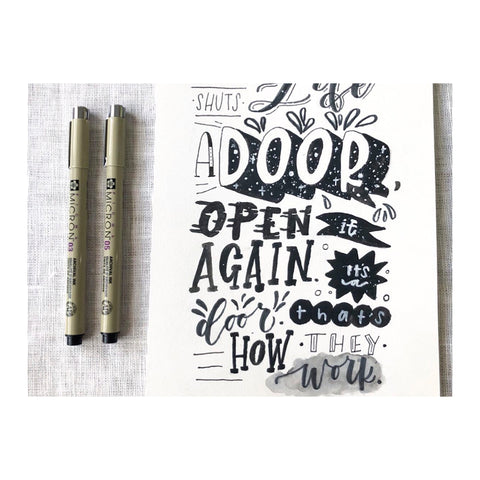 Life
SHUTS
A DOOR,
OPEN it.
AGAIN. It's a
door. thats
HOW THEY
work.
MICRON 03
ARCHIVAL INK
MICRON 05
ARCHIVAL INK